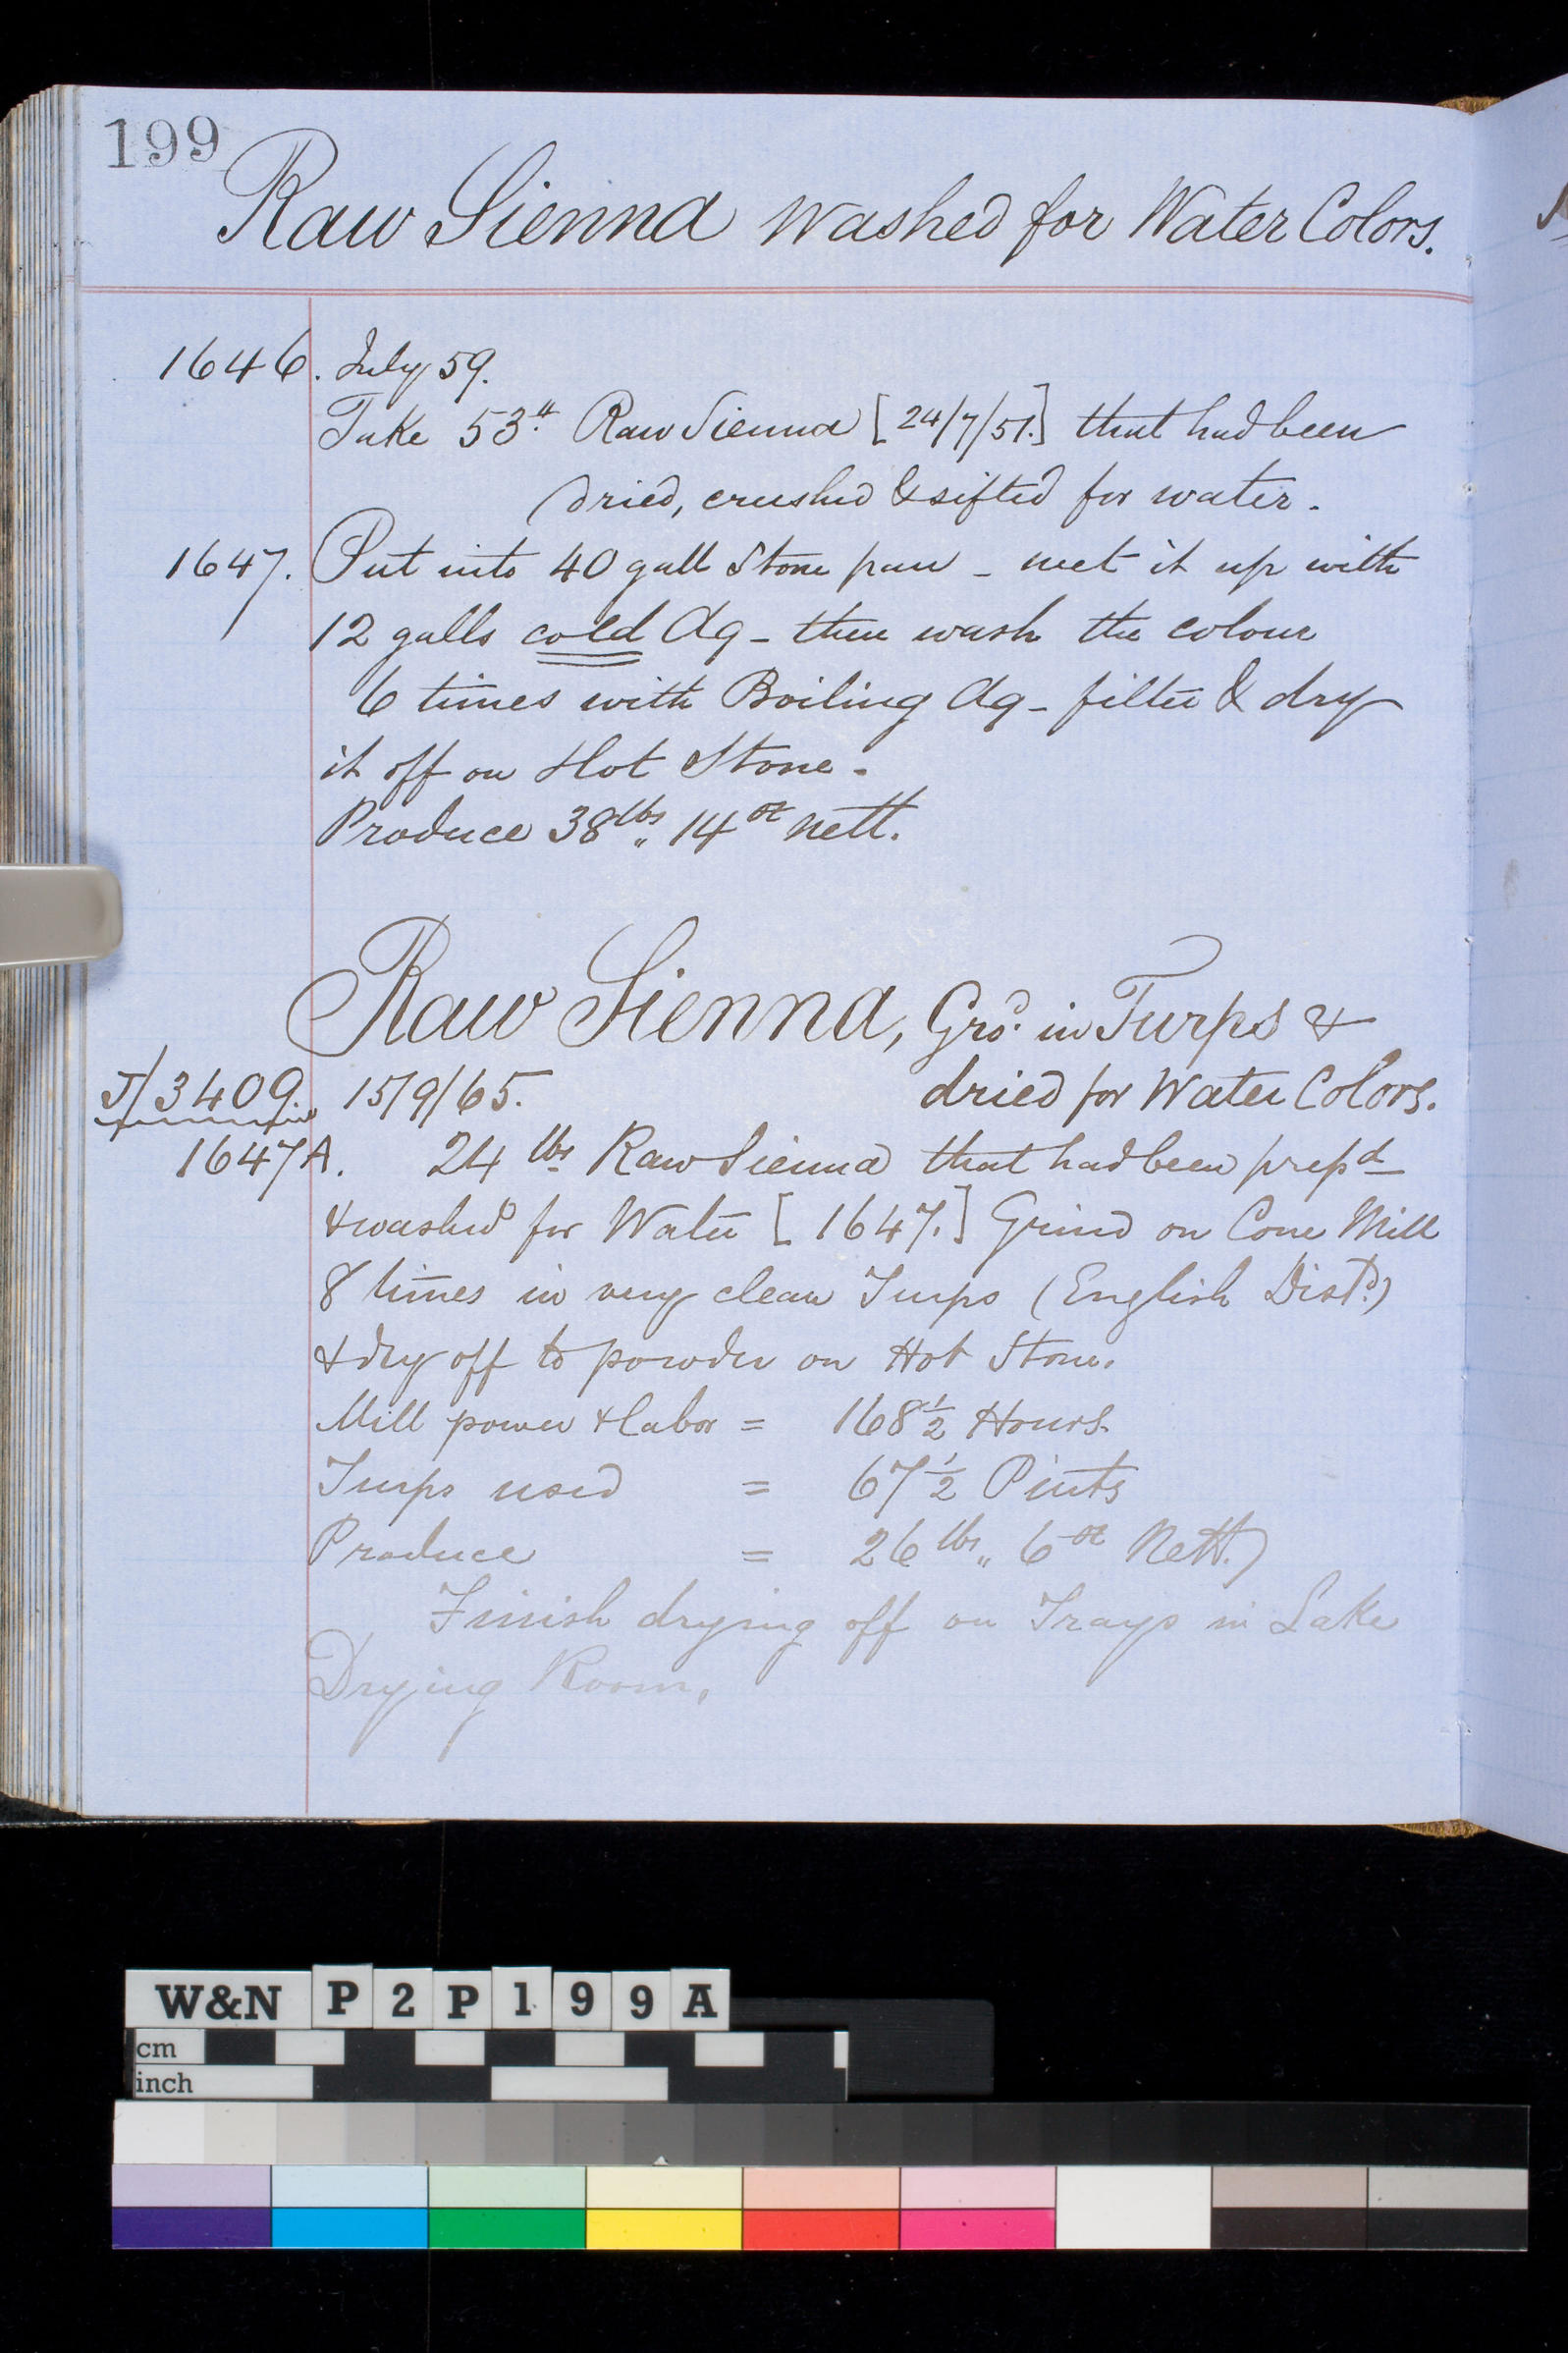 199
Raw Sienna washed for Water Colors.
1646. July 59.
Take 53 lb. Raw Sienna [24/7/51.] that had been
dried, crushed & sifted for water.
1647. Put into 40 gall Stone pan - wet it up with
12 galls cold Aq - then wash the colour
6 times with Boiling Aq - filter & dry
it off on Hot Stone.
Produce 38 lbs,, 14 oz nett.
Raw Sienna, Gro.d in Turps &
dried for Water Colors.
J/3409. 15/9/65.
1647A. 24 lbs Raw Sienna that had been prepd
& washed for Water [1647.] Grind on Cone Mill
8 times in very clean Turps (English Distd.)
& dry off to powder on Hot Stone.
Mill power & labor = 168½ Hours.
Turps used = 67½ Pints
Produce = 26 lbs,, 6 oz Nett.)
Finish drying off on Trays in Lake
Drying Room.
W&N P2P199A
cm
inch